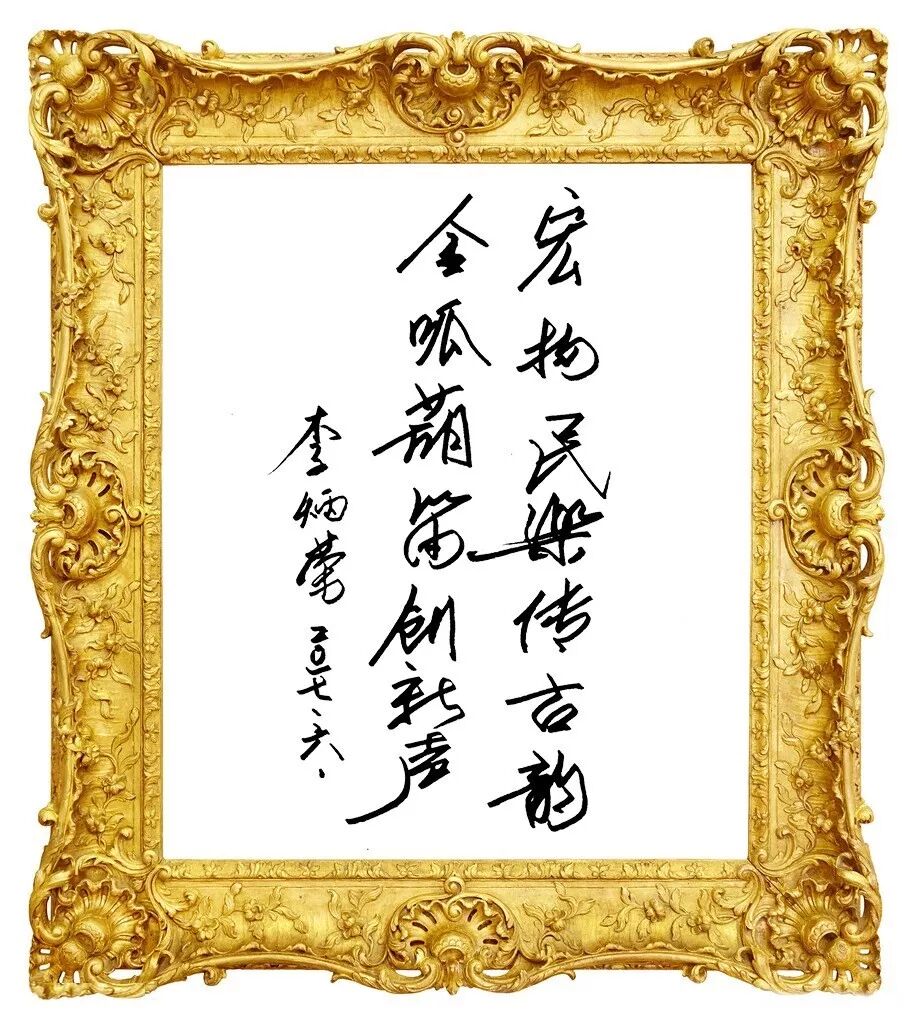 宏扬民樂传古韵
全呱葫笛创新声
李炳荣 二〇一七、六、